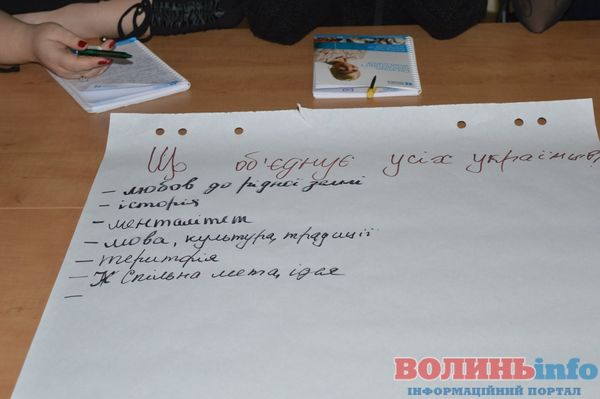 Що об'єднує усіх українців?
- любов до рідної землі
- історія
- менталітет
- мова, культура, традиції
- територія
- Спільна мета, ідея
-
ВОЛИНЬinfo
ІНФОРМАЦІЙНИЙ ПОРТАЛ